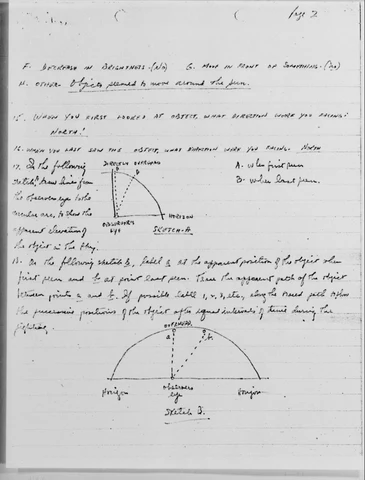 Page 2
F. DECREASE IN BRIGHTNESS-(No) G. MOVE IN FRONT OF SOMETHING-(No)
H. OTHER. Objects seemed to move around the sun.
15. WHEN YOU FIRST LOOKED AT OBJECT, WHAT DIRECTION WERE YOU FACING?
NORTH!
16. WHEN YOU LAST SAW THIS OBJECT, WHAT DIRECTION WERE YOU FACING. NORTH
17. In the following
sketch, draw lines from
the observers eye to the
circular arc, to show the
apparent elevation of
the object in the sky.
DIRECTLY OVERHEAD
A B
OBSERVER'S
eye
HORIZON
SKETCH-A
A- when first seen
B- when last seen.
18. On the following sketch B, label a at the apparent position of the object when
first seen and b at point last seen. Trace the apparent path of the object
between points a and b. If possible label 1, 2, 3, etc, along the traced path to show
the successive positions of the object after equal intervals of time during the
sighting.
OVERHEAD
a b
Horizon
observers
eye
Horizon
Sketch B.